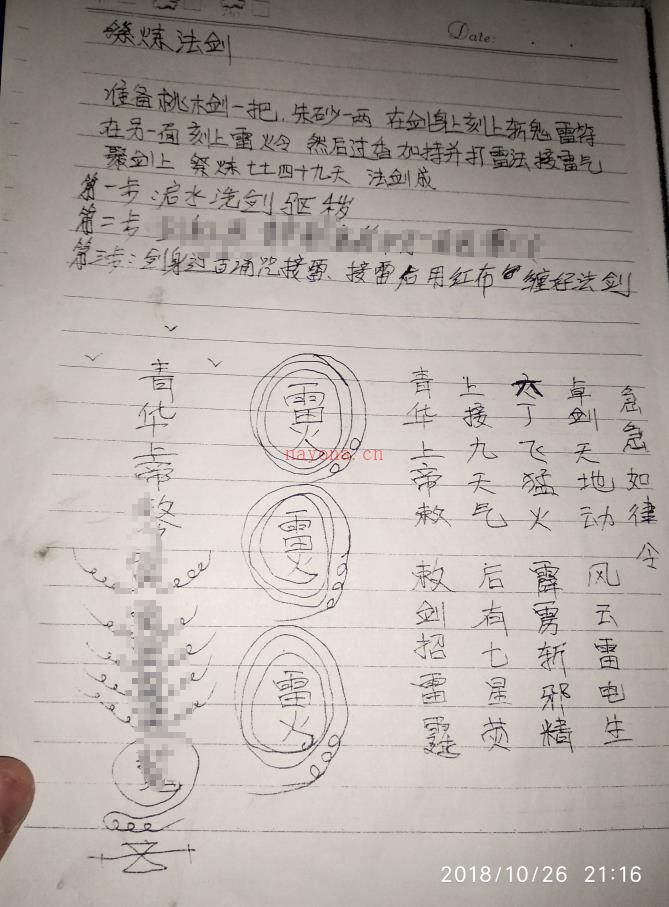 Date:
祭炼法剑
准备桃木剑一把，朱砂一两 在剑身上刻上斩鬼雷符
在另一面刻上雷火令 然后过香加持并打雷法接雷气
聚剑上 祭炼七七四十九天 法剑成
第一步:浴水洗剑 驱秽
第二步
第三步:剑身过百诵咒接雷、接雷后用红布缠好法剑
青华上帝
雷火
雷火
雷火
青华上帝敕 敕剑招雷霆
上接九天气 后有七星荧
六丁飞猛火 霹雳斩邪精
卓剑天地动 风云雷电生
急急如律令
nayona.cn
2018/10/26 21:16